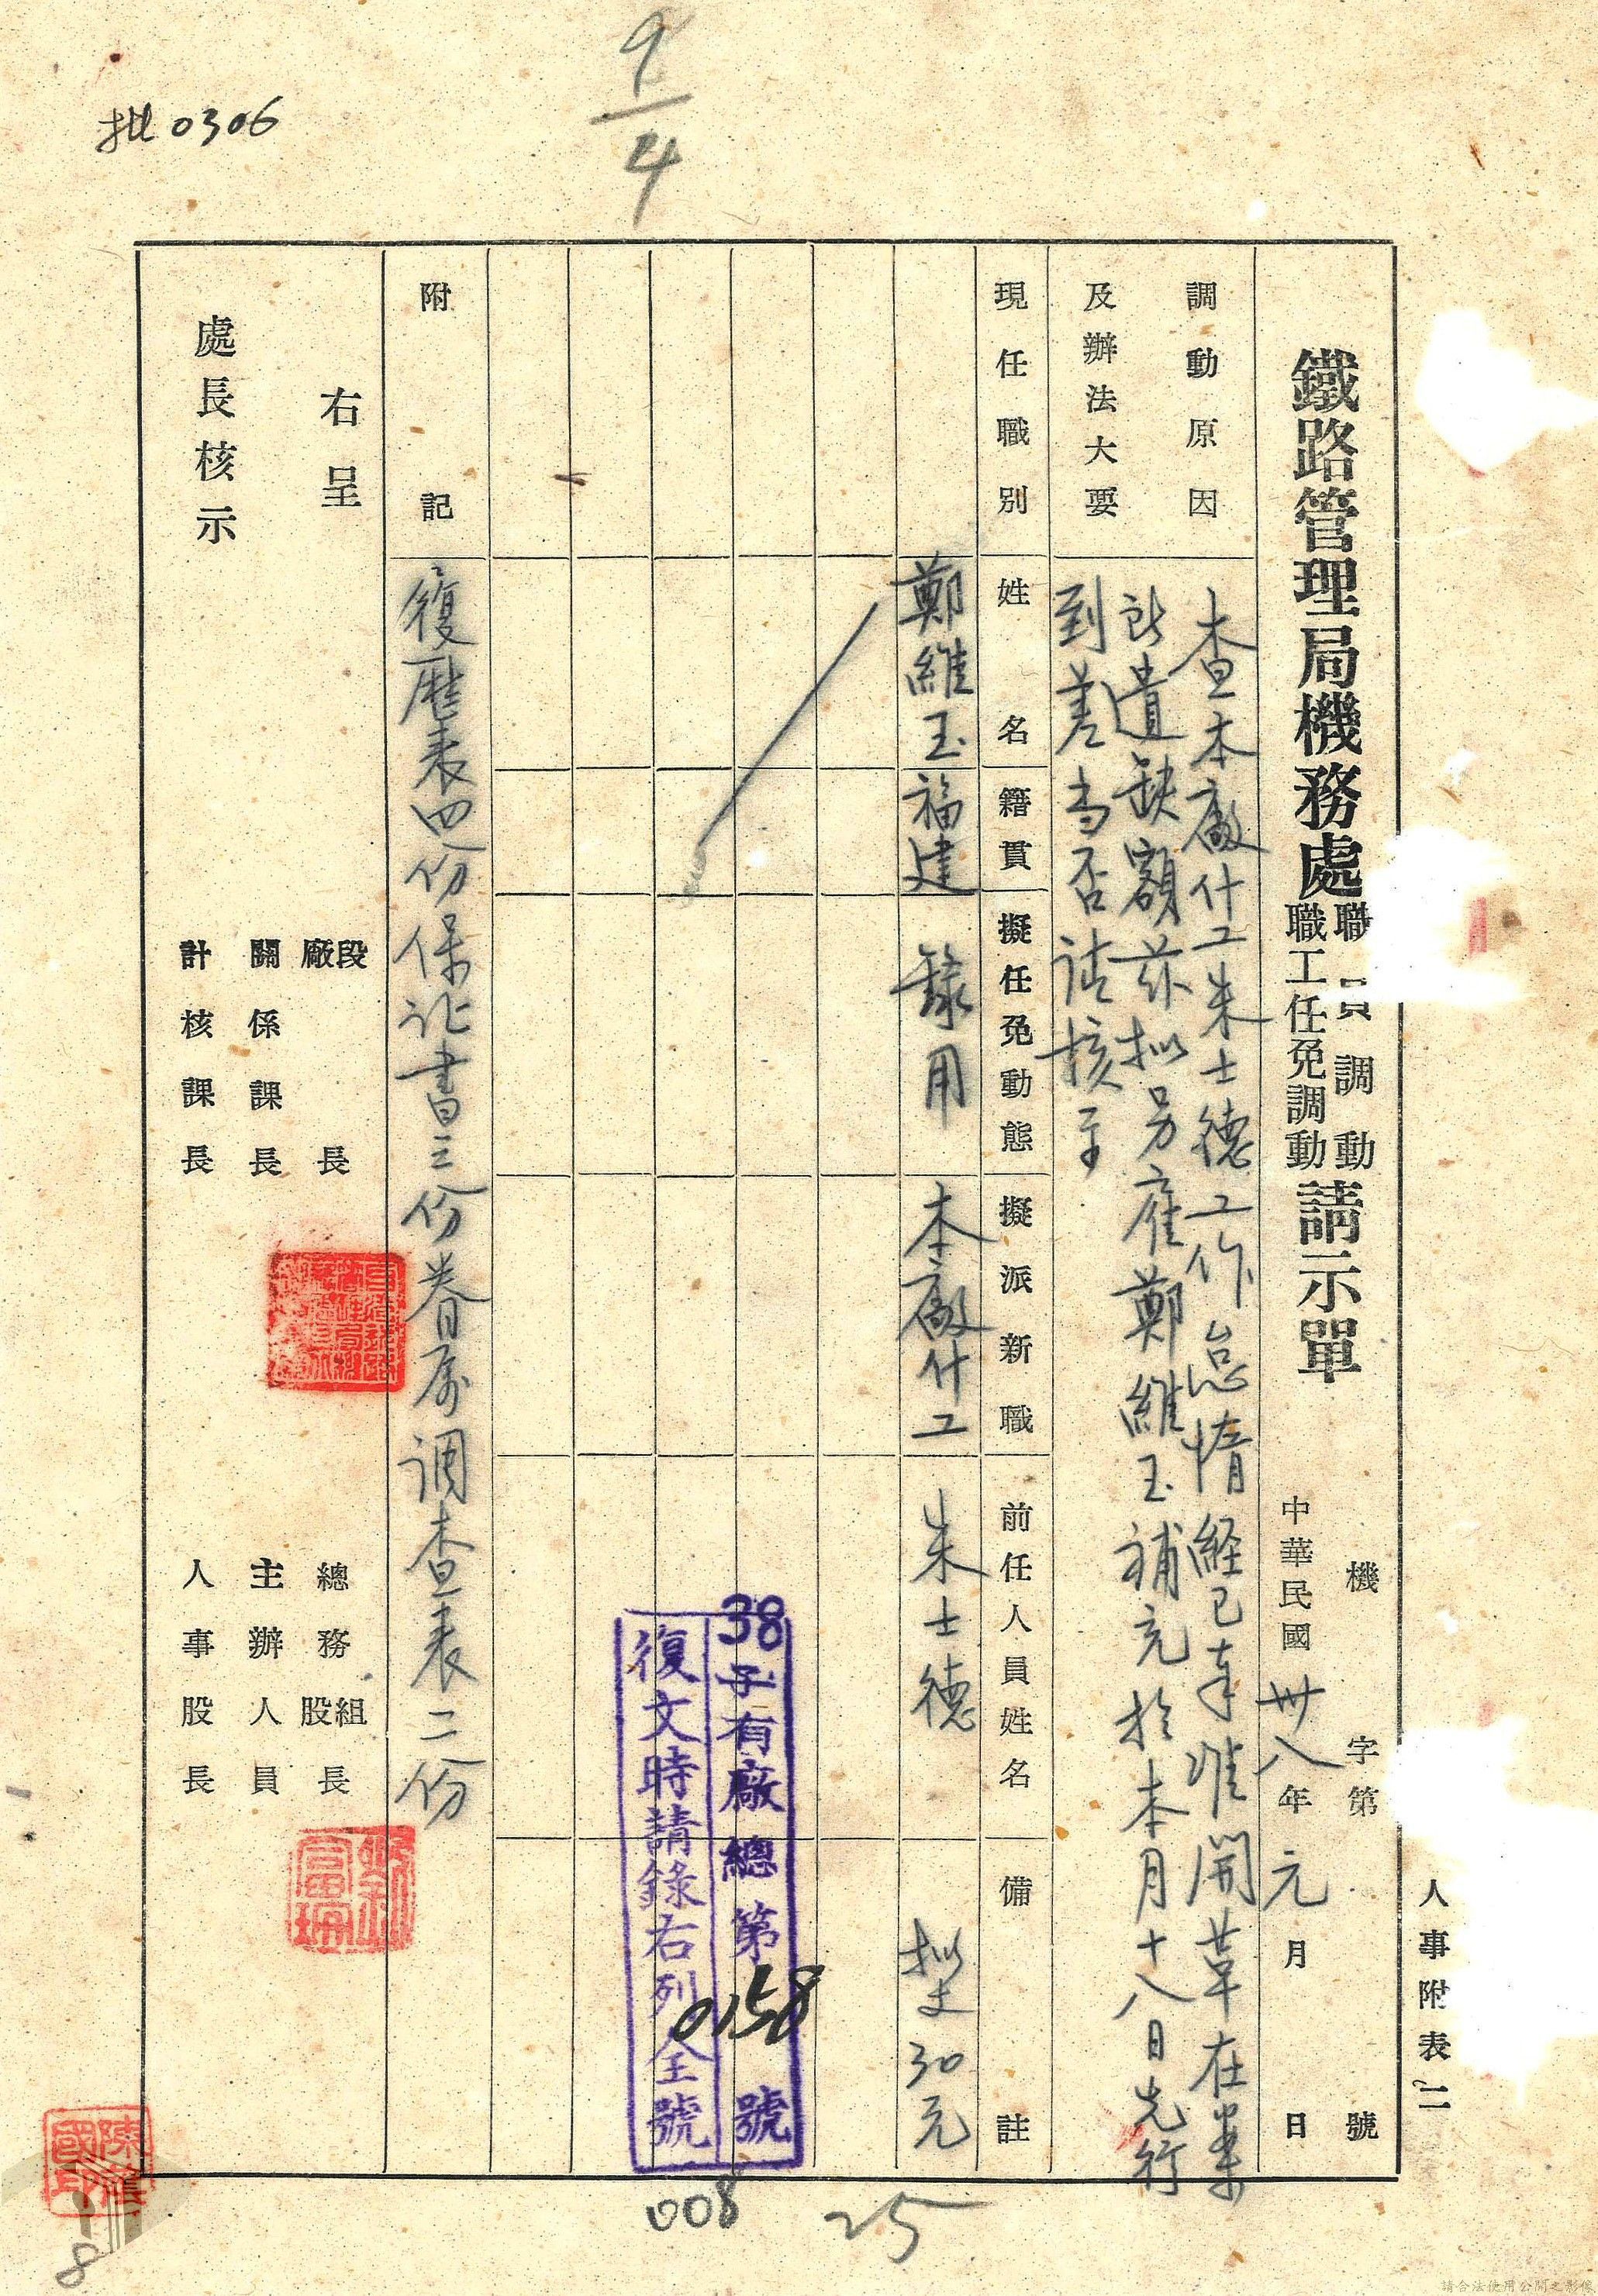 批0306
9/4
人事附表二
機 字第 號
鐵路管理局機務處職員調動職工任免調動請示單
中華民國卅八年元月 日
調動原因及辦法大要
查本廠什工朱士德工作怠惰経已奉准開革在案
所遺缺額茲拟另雇鄭維玉補充於本月十八日先行
到差当否請核示
現任職別 姓名 籍貫 擬任免動態 擬派新職 前任人員姓名 備註
鄭維玉 福建 錄用 本廠什工 朱士德 拟支30元
38子有廠總第0158號
復文時請錄右列全號
附記
復歷表四份保证書三份眷属调查表二份
右呈
處長核示
廠段長 總務股組長
關係課長 主辦人員
計核課長 人事股長
008
25
8
請合法使用公開之影像